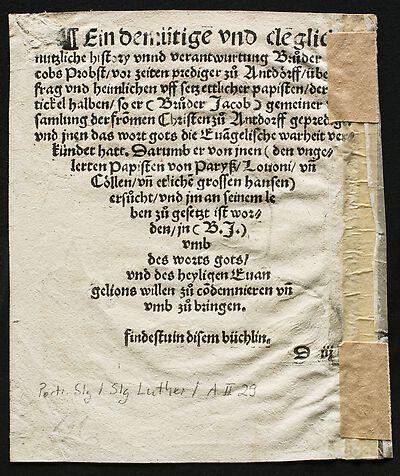 ¶ Ein demütige vnd cleglic
nutzliche history vnnd verantwurtung Brůder
cobs Probst/vor zeiten prediger zů Antdorff/übe
frag vnd heimlichen vff setz ettlicher papisten/der
tickel halben/so er (Brůder Jacob) gemeiner v
samlung der frömen Christen zů Antdorff geprediget
vnd jnen das wort gots die Euāgelische warheit ver-
kündet hatt. Darumb er von jnen (den vnge-
lerten Papisten von Paryß/Louoni/vñ
Cöllen/vñ etlichē grossen hansen)
ersůcht/vnd jm an seinem le
ben zů gesetzt ist wor-
den/jn (B.J.)
vmb
des worts gots/
vnd des heyligen Euan
gelions willen zů cōdemnieren vñ
vmb zů bringen.
findestu in disem büchlin.
D iij
Portr. Slg / Slg Luther / A II 29